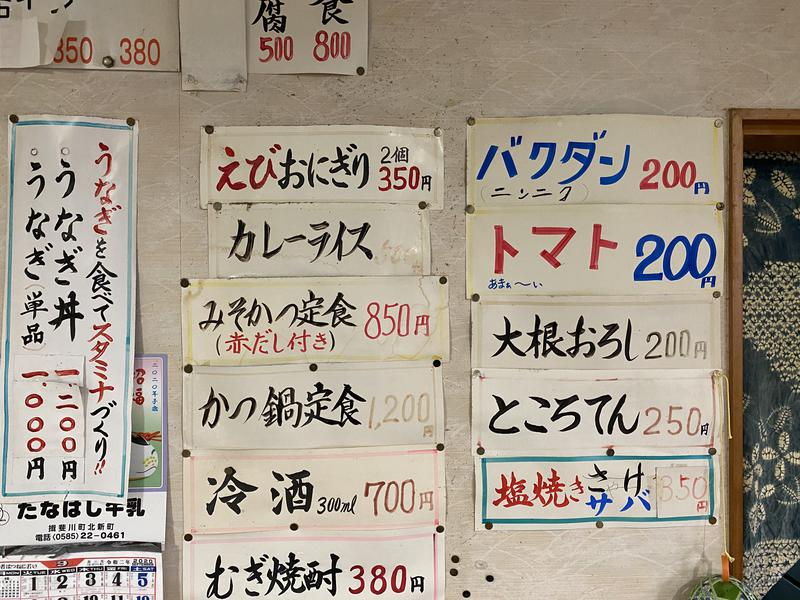 350 380
腐 食
500 800
うなぎを食べてスタミナづくり!!
うなぎ丼 一、二〇〇円
うなぎ(単品) 一、〇〇〇円
えびおにぎり 2個 350円
カレーライス
みそかつ定食 850円
(赤だし付き)
かつ鍋定食 1,200円
冷酒 300ml 700円
むぎ焼酎 380円
バクダン 200円
(ニンニク)
トマト 200円
あまぁ〜い
大根おろし 200円
ところてん 250円
塩焼き さけ サバ 350円
招福
たなはし牛乳
揖斐川町北新町
電話(0585)22-0461
9 2020
1 2 3 4 5